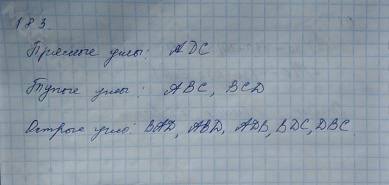 183.
Прямые углы: ADC
Тупые углы: ABC, BCD
Острые углы: BAD, ABD, ADB, BDC, DBC